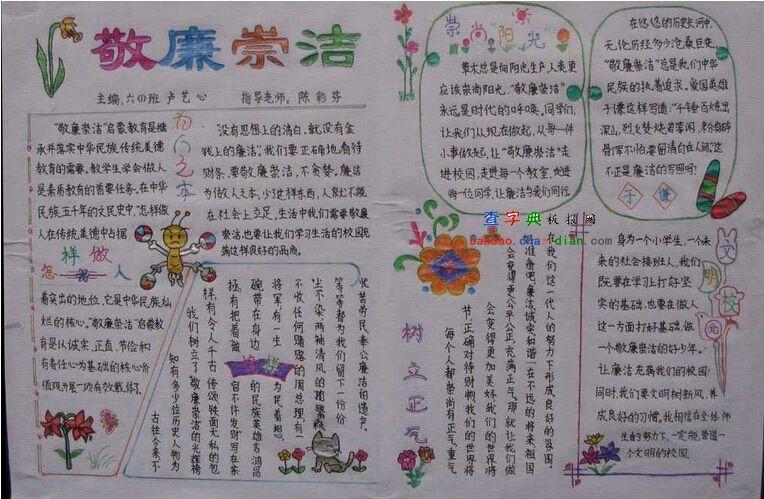 敬廉崇洁
主编:六(1)班 卢艺心 指导老师:陈彩芬
"敬廉崇洁"启蒙教育是继
承并落实中华民族传统美德
教育的需要,教学生学会做人
是素质教育的首要任务,在中华
民族五千年的文明史中,怎样做
人在传统美德中占据
怎样做人
着突出的地位,它是中华民族灿
烂的核心,"敬廉崇洁"启蒙教
育是以诚实、正直、节俭和
有责任心为基础的核心价
值观开展一项有效载体。
为人之本
"没有思想上的清白,就没有金
钱上的廉洁",我们要正确地看待
财务,要敬廉崇洁,不贪婪,廉洁
在社会上立足,生活中我们需要敬廉
崇洁,也要让我们学习生活的校园充
满这样良好的品质。
榜样
古往今来不
知有多少位历史人物为
我们树立了"敬廉崇洁"的光辉榜
样,有令人千古传颂铁面无私的包
拯,有把着做
碗带在身边
将军,有一生
不收任何赂赂的周总理有一
尘不染,两袖清风的
等等,等都为我们留下一份份
忧苦劳民,奉公廉洁的遗产。
崇尚"阳光"
草木总是向阳光生产,人类更
应该崇尚阳光,"敬廉崇洁"
永远是时代的呼唤。同学们,
让我们从现在做起,从每一件
小事做起,让"敬廉崇洁"走
进校园,走进每一个教室,走进
每一位同学,让廉洁与我们同行
在悠悠的历史长河中,
无论历经多少沧桑巨变,
"敬廉崇洁"总是我们中华
民族的执着追求。爱国英雄
于谦这样写道:"千锤百炼出
深山,烈火焚烧若等闲,粉身碎
骨浑不怕,要留清白在人间"这
不正是廉洁的写照吗?
于谦
查字典板报网
banbao.chazidian.com
树立正气
在我们这一代人的努力下形成良好的氛围。
准备吧,廉洁,诚实,和谐——在不远的将来,祖国
会变得更公平公正,充满正气。那就让我们做
会变得更加美好,我们的世界将
节,正确对待财物,我们的世界将
每个人都崇尚有正气,重气
文明校园
身为一个小学生,一个未
来的社会接班人,我们
既要在学习上打好坚
实的基础,也要在做人
这一方面打好基础,做
一个敬廉崇洁的好少年。
让廉洁充满我们的校园!
同时,我们要文明树新风,养
成良好的习惯,我相信在全体师
生的努力下,一定能营造一
个文明的校园。